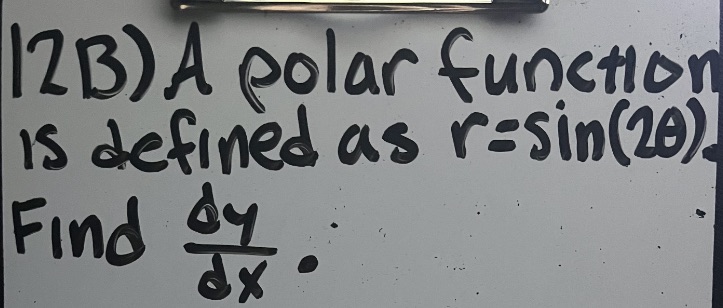 12B) A polar function
is defined as r=sin(2θ).
Find dy/dx.